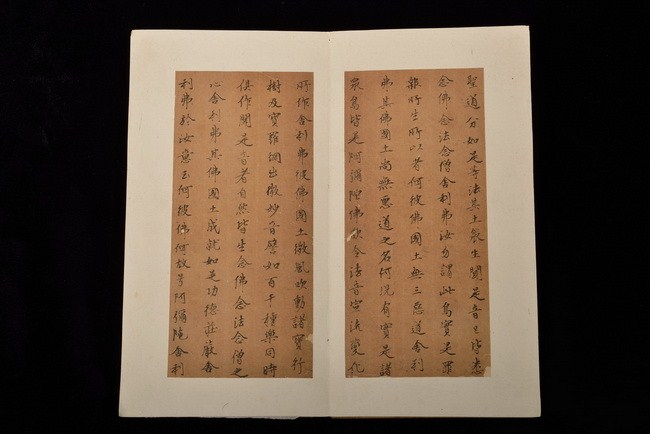 聖道分如是等法其土眾生聞是音已皆悉
念佛念法念僧舍利弗汝勿謂此鳥實是罪
報所生所以者何彼佛國土無三惡道舍利
弗其佛國土尚無惡道之名何況有實是諸
眾鳥皆是阿彌陀佛欲令法音宣流變化
所作舍利弗彼佛國土微風吹動諸寶行
樹及寶羅網出微妙音譬如百千種樂同時
俱作聞是音者自然皆生念佛念法念僧之
心舍利弗其佛國土成就如是功德莊嚴舍
利弗於汝意云何彼佛何故号阿彌陀舍利